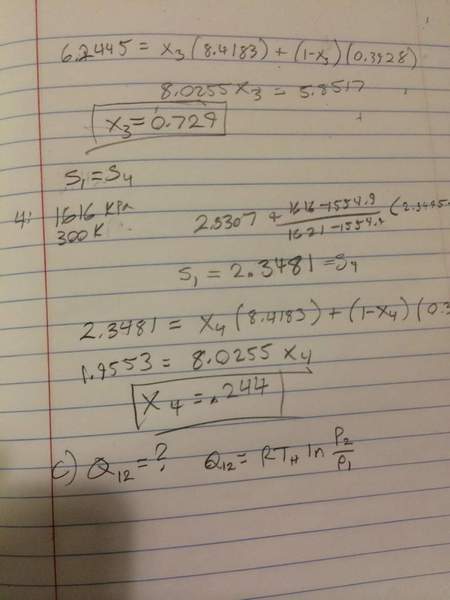 6.2445 = x₃(8.4183) + (1-x₃)(0.3928)
8.0255x₃ = 5.8517
x₃ = 0.729
S₁ = S₄
4: 1616 kPa
300K
2.3307 + (1616-1554.9)/(1621-1554.9) (2.3495-
S₁ = 2.3481 = S₄
2.3481 = x₄(8.4183) + (1-x₄)(0.3
1.9553 = 8.0255 x₄
x₄ = .244
c) Q₁₂ = ? Q₁₂ = RT_H ln P₂/P₁